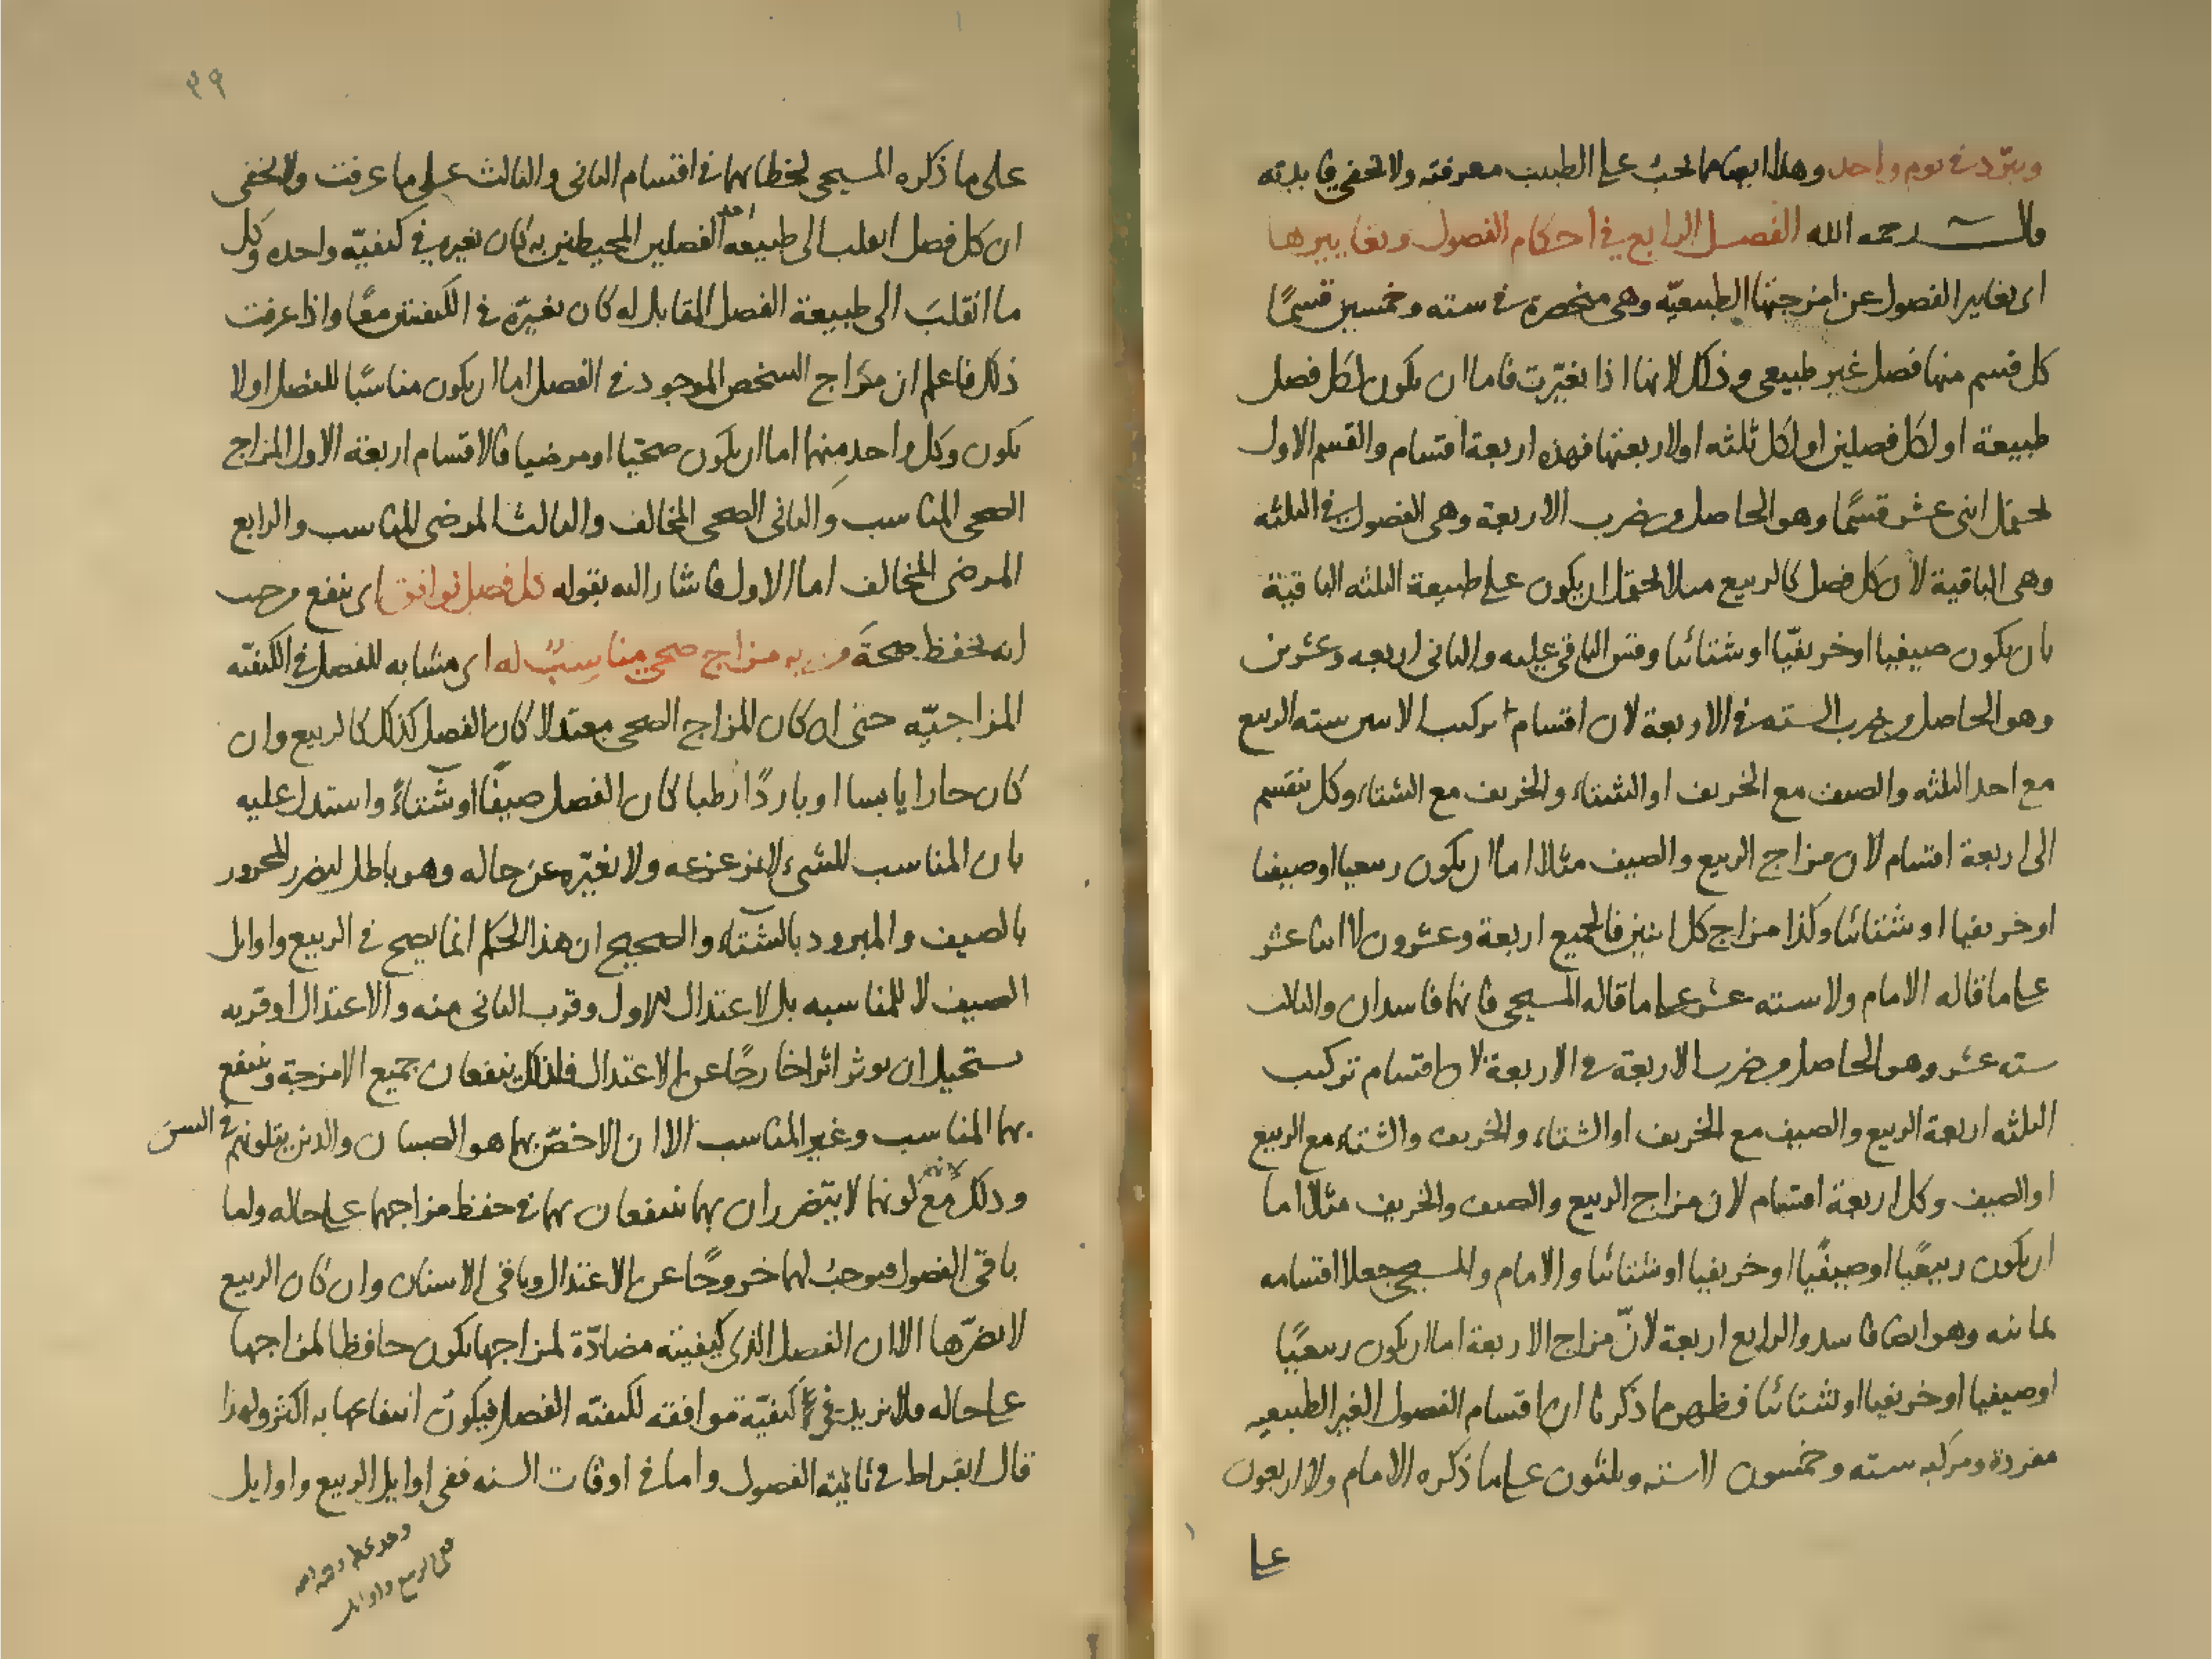 ويبرد في يوم واحد وهذا ايضا مما يجب على الطبيب معرفته ولا تخفى فايدته
قال رحمه الله الفصل الرابع في احكام الفصول وتغاييرها
اى تغايير الفصول عن امزجتها الطبيعيّه وهى منحصرة في سته وخمسين قسمًا
كل قسم منها فصل غير طبيعى وذلك لانها اذا تغيّرت فاما ان يكون لكل فصل
طبيعة او لكل فصلين او لكل ثلثه او لاربعتها فهذه اربعة اقسام والقسم الاول
يحتمل اثنى عشر قسمًا وهو الحاصل من ضرب الاربعة وهى الفصول في الثلثه
وهى الباقية لان كل فصل كالربيع مثلا يحتمل ان يكون على طبيعة الثلثه الباقية
بان يكون صيفيا او خريفيّا او شتائيا وقس الباقى عليه والثانى اربعه وعشرين
وهو الحاصل من ضرب السته في الاربعة لان اقسام تركيب الاثنين سته الربيع
مع احد الثلثه والصيف مع الخريف او الشتاء والخريف مع الشتاء وكل ينقسم
الى اربعة اقسام لان مزاج الربيع والصيف مثلا اما ان يكون ربيعيا او صيفيا
او خريفيا او شتائيا وكذا مزاج كل اثنين فالجميع اربعة وعشرون لا اثنا عشر
على ما قاله الامام ولا سته عشر على ما قاله المسيحى فانهما فاسدان والثالث
سته عشر وهو الحاصل من ضرب الاربعة في الاربعة لان اقسام تركيب
الثلثه اربعة الربيع والصيف مع الخريف او الشتاء والخريف والشتاء مع الربيع
او الصيف وكل اربعة اقسام لان مزاج الربيع والصيف والخريف مثلا اما
ان يكون ربيعيًا او صيفيًا او خريفيا او شتائيا والامام والمسيحى جعلا اقسامه
ثمانيه وهو ايضا فاسد والرابع اربعة لانّ مزاج الاربعة اما ان يكون ربيعيًا
او صيفيا او خريفيا او شتائيا فظهر مما ذكرنا ان اقسام الفصول الغير الطبيعيه
مفردة ومركبه سته وخمسون لا سته وثلثون على ما ذكره الامام ولا اربعون
على
٣٩
على ما ذكره المسيحى لخطائهما في اقسام الثانى والثالث على ما عرفت ولا يخفى
ان كل فصل انقلب الى طبيعه احد الفصلين المحيطين به كان تغيره في كيفيّه واحده وكل
ما انقلب الى طبيعة الفصل المقابل له كان تغيّره في الكيفتين معًا واذا عرفت
ذلك فاعلم ان مزاج الشخص الموجود في الفصل اما ان يكون مناسبًا للفصل او لا
يكون وكل واحد منهما اما ان يكون صحيا او مرضيا فالاقسام اربعة الاول المزاج
الصحى المناسب والثانى الصحى المخالف والثالث المرضى المناسب والرابع
المرضى المخالف اما الاول فاشار اليه بقوله كل فصل يوافق اى ينفع من حيث
انه يحفظ صحة من به مزاج صحى مناسب له اى مشابه للفصل في الكيفيّه
المزاجيّه حتى ان كان المزاج الصحى معتدلا كان الفصل كذلك كالربيع وان
كان حارا يابسا او باردًا رطبا كان الفصل صيفًا او شتاءً واستدل عليه
بان المناسب للشىء لا يزعزعه ولا يغيّره عن حاله وهو باطل لتضرر المحرور
بالصيف والمبرود بالشتاء والصحيح ان هذا الحكم انما يصح في الربيع واوايل
الصيف لا للمناسبه بل لاعتدال الاول وقرب الثانى منه والاعتدال او قربه
يستحيل ان يوثر اثرا خارجًا عن الاعتدال فلذلك ينفعان جميع الامزجة وينتفع
بهما المناسب وغير المناسب الا ان الاخصّ بهما هو الصبيان والذين يتلونهم في السن
وذلك لانهم مع كونهما لا يتضرران بهما ينتفعان بهما في حفظ مزاجهما على حاله واما
باقى الفصول فيوجب لهما خروجًا عن الاعتدال وباقى الاسنان وان كان الربيع
لا يضرّها الا ان الفصل الذى كيفيته مضادّة لمزاجها يكون حافظا لمزاجها
على حاله ولا يزيد في كيفيّة موافقه لكيفيته الفصل فيكون انتفاعها به اكثر ولهذا
قال ابقراط في ثانية الفصول واما في اوقات السنه ففى اوايل الربيع واوايل